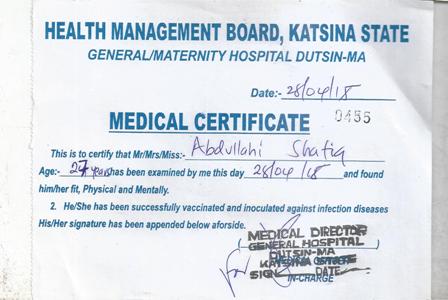 HEALTH MANAGEMENT BOARD, KATSINA STATE
GENERAL/MATERNITY HOSPITAL DUTSIN-MA
Date:- 28/04/18
MEDICAL CERTIFICATE 0455
This is to certify that Mr/Mrs/Miss:- Abdullahi Shafiq
Age:- 27 years has been examined by me this day 28/04/18 and found
him/her fit, Physical and Mentally.
2. He/She has been successfully vaccinated and inoculated against infection diseases
His/Her signature has been appended below aforside.
MEDICAL DIRECTOR
GENERAL HOSPITAL
DUTSIN-MA
KATSINA STATE
SIGN DATE
IN-CHARGE